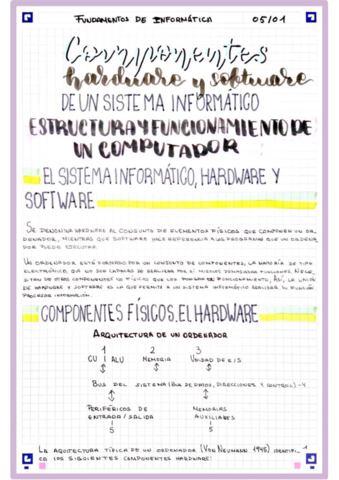 FUNDAMENTOS DE INFORMÁTICA 05/01
Componentes
hardware y software
DE UN SISTEMA INFORMÁTICO
ESTRUCTURA Y FUNCIONAMIENTO DE
UN COMPUTADOR
EL SISTEMA INFORMÁTICO, HARDWARE Y
SOFTWARE
SE DENOMINA HARDWARE AL CONJUNTO DE ELEMENTOS FÍSICOS QUE COMPONEN UN OR_
DENADOR, MIENTRAS QUE SOFTWARE HACE REFERENCIA A LOS PROGRAMAS QUE UN ORDENA_
DOR PUEDE EJECUTAR.
UN ORDENADOR ESTÁ FORMADO POR UN CONJUNTO DE COMPONENTES, LA MAYORÍA DE TIPO
ELECTRÓNICO, QUE NO SON CAPACES DE REALIZAR POR SÍ MISMOS DEMASIADAS FUNCIONES. NECE_
SITAN DE OTROS COMPONENTES NO FÍSICOS QUE LOS PONGAN EN FUNCIONAMIENTO. ASÍ, LA UNIÓN
DE HARDWARE Y SOFTWARE ES LA QUE PERMITE A UN SISTEMA INFORMÁTICO REALIZAR SU FUNCIÓN
PROCESAR INFORMACIÓN.
COMPONENTES FÍSICOS. EL HARDWARE
ARQUITECTURA DE UN ORDENADOR
1 2 3
CU ALU MEMORIA UNIDAD DE E/S
BUS DEL SISTEMA (BUS DE DATOS, DIRECCIONES Y CONTROL) - 4
PERIFÉRICOS DE MEMORIAS
ENTRADA / SALIDA AUXILIARES
5 5
LA AQUITECTURA TÍPICA DE UN ORDENADOR (VON NEUMANN 1945) IDENTIFI_
CA LOS SIGUIENTES COMPONENTES HARDWARE:
1